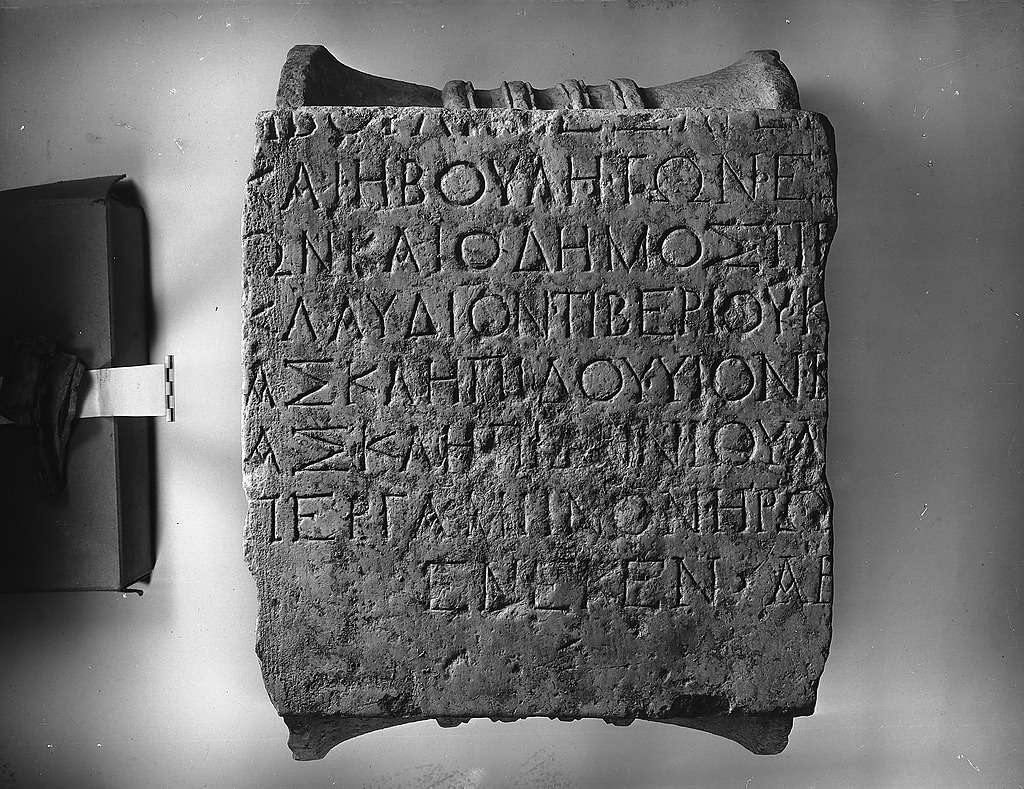 ΗΒΟΥΛΗ
ΚΑΙΗΒΟΥΛΗΤΩΝΕ
ΩΝΚΑΙΟΔΗΜΟΣΤΙΒ
ΚΛΑΥΔΙΟΝΤΙΒΕΡΙΟΥΚ
ΑΣΚΛΗΠΙΔΟΥΥΙΟΝΚ
ΑΣΚΛΗΠΙΔΗΝΙΟΥΛ
ΠΕΡΓΑΜΗΝΟΝΗΡΩ
ΕΝΕΚΕΝΚΑΙ